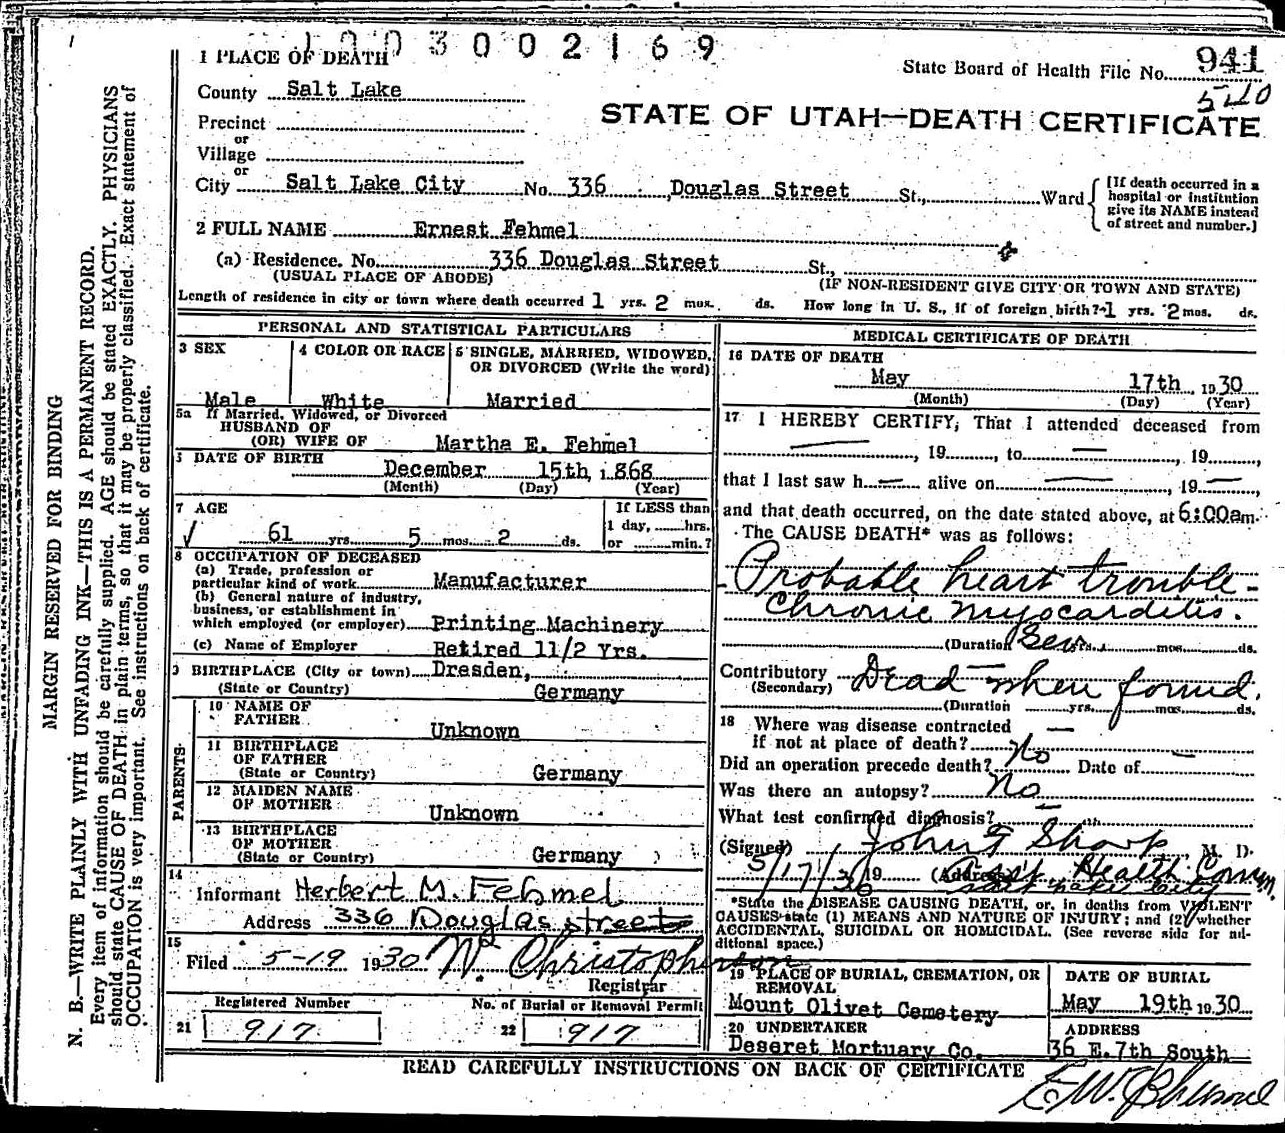 1003002169
1 PLACE OF DEATH
State Board of Health File No. 941
County Salt Lake
STATE OF UTAH—DEATH CERTIFICATE
Precinct
or
Village
or
City Salt Lake City No. 336 Douglas Street St., Ward
[If death occurred in a
hospital or institution
give its NAME instead
of street and number.]
2 FULL NAME Ernest Fehmel
(a) Residence. No. 336 Douglas Street St.,
(USUAL PLACE OF ABODE) (IF NON-RESIDENT GIVE CITY OR TOWN AND STATE)
Length of residence in city or town where death occurred 1 yrs. 2 mos. ds. How long in U. S., if of foreign birth? 1 yrs. 2 mos. ds.
PERSONAL AND STATISTICAL PARTICULARS
3 SEX
Male
4 COLOR OR RACE
White
5 SINGLE, MARRIED, WIDOWED,
OR DIVORCED (Write the word)
Married
5a If Married, Widowed, or Divorced
HUSBAND OF
(OR) WIFE OF Martha E. Fehmel
DATE OF BIRTH
December 15th, 1868
(Month) (Day) (Year)
7 AGE
61 yrs. 5 mos. 2 ds.
If LESS than
1 day, hrs.
or min.?
8 OCCUPATION OF DECEASED
(a) Trade, profession or
particular kind of work Manufacturer
(b) General nature of industry,
business, or establishment in
which employed (or employer) Printing Machinery
(c) Name of Employer Retired 11/2 Yrs.
9 BIRTHPLACE (City or town) Dresden,
(State or Country) Germany
PARENTS
10 NAME OF
FATHER Unknown
11 BIRTHPLACE
OF FATHER
(State or Country) Germany
12 MAIDEN NAME
OF MOTHER Unknown
13 BIRTHPLACE
OF MOTHER
(State or Country) Germany
14
Informant Herbert M. Fehmel
Address 336 Douglas street
15
Filed 5-19 1930 W. Christopherson
Registrar
Registered Number
21 917
No. of Burial or Removal Permit
22 917
MEDICAL CERTIFICATE OF DEATH
16 DATE OF DEATH
May 17th, 1930
(Month) (Day) (Year)
17 I HEREBY CERTIFY, That I attended deceased from
—, 19, to —, 19,
that I last saw h — alive on —, 19 —,
and that death occurred, on the date stated above, at 6:00am.
The CAUSE DEATH* was as follows:
Probable heart trouble -
Chronic myocarditis.
(Duration yrs. mos. ds.
Contributory Dead when found.
(Secondary)
(Duration yrs. mos. ds.
18 Where was disease contracted
if not at place of death? —
Did an operation precede death? No Date of —
Was there an autopsy? No
What test confirmed diagnosis? —
(Signed) John T Sharp, M. D.
5/17/30 19 (Address) Asst. Health Comm,
Salt Lake City
*State the DISEASE CAUSING DEATH, or, in deaths from VIOLENT
CAUSES state (1) MEANS AND NATURE OF INJURY; and (2) whether
ACCIDENTAL, SUICIDAL OR HOMICIDAL. (See reverse side for additional space.)
19 PLACE OF BURIAL, CREMATION, OR
REMOVAL
Mount Olivet Cemetery
DATE OF BURIAL
May 19th 1930
20 UNDERTAKER
Deseret Mortuary Co.
ADDRESS
36 E. 7th South
READ CAREFULLY INSTRUCTIONS ON BACK OF CERTIFICATE
MARGIN RESERVED FOR BINDING
N. B.—WRITE PLAINLY WITH UNFADING INK—THIS IS A PERMANENT RECORD.
Every item of information should be carefully supplied. AGE should be stated EXACTLY. PHYSICIANS
should state CAUSE OF DEATH in plain terms, so that it may be properly classified. Exact statement of
OCCUPATION is very important. See instructions on back of certificate.